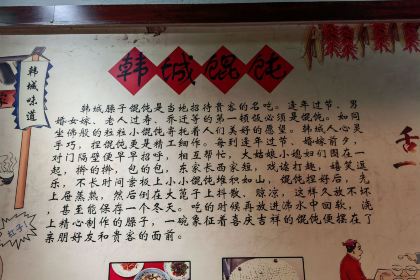 韩城馄饨
韩城味道
韩城臊子馄饨是当地招待贵客的名吃。逢年过节、男
婚女嫁、老人过寿、乔迁等的第一顿饭必须是馄饨。如同
坐佛般的粒粒小馄饨寄托着人们美好的愿望。韩城人心灵
手巧，捏馄饨更是精工细作。每到逢年过节、婚嫁前夕，
对门隔壁便早早招呼，相互帮忙，大姑娘小媳妇们围在一
起，擀的擀，包的包，东家长西家短，戏谑打趣，嬉笑逗
乐，不长时间案板上小小馄饨堆积如山，馄饨捏好后，先
上屉蒸熟，然后倒在大笸子上抖散、晾凉，这样久放不坏
，甚至能保存一个冬天。吃的时候再放进沸水中回软，浇
上精心制作的臊子，一碗象征着喜庆吉祥的馄饨便摆在了
亲朋好友和贵客的面前。
舌